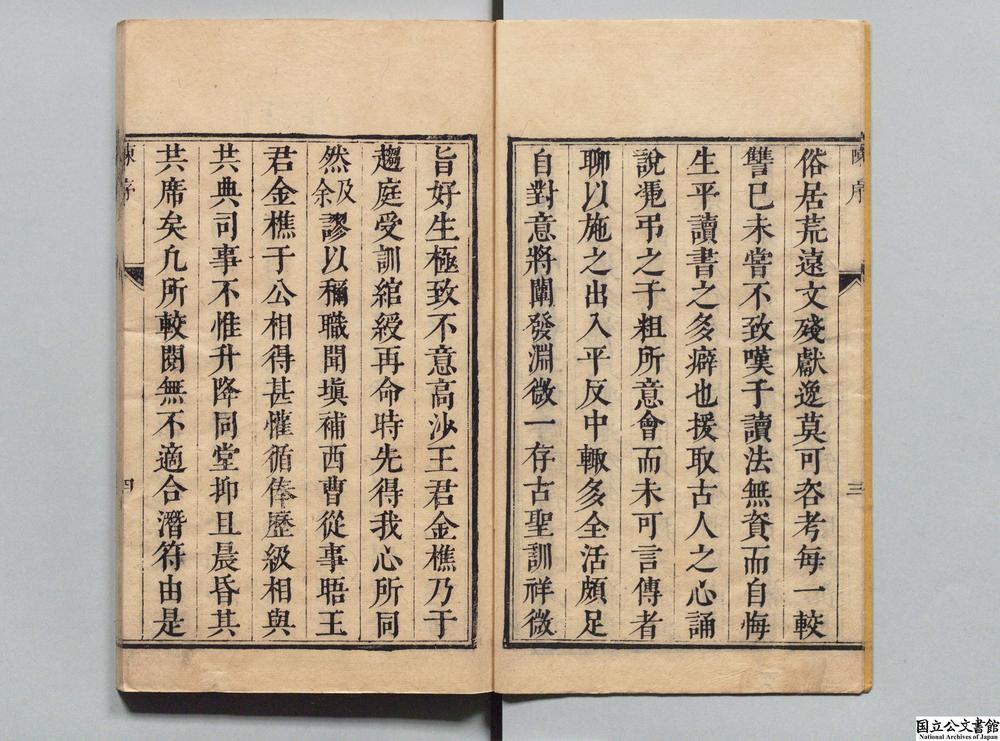 俗居荒遠文殘獻逸莫可咨考每一較
讐已未嘗不致嘆于讀法無資而自悔
生平讀書之多癖也援取古人之心誦
說凴弔之于粗所意會而未可言傳者
聊以施之出入平反中輙多全活頗足
自對意將闡發淵微一存古聖訓祥微
旨好生極致不意高沙王君金樵乃于
趨庭受訓綰綬再命時先得我心所同
然及余謬以稱職聞塡補西曹從事晤王
君金樵于公相得甚懽循俸歷級相與
共典司事不惟升降同堂抑且晨昏其
共席矣凢所較閱無不適合潛符由是
陳序
三
四
国立公文書館
National Archives of Japan